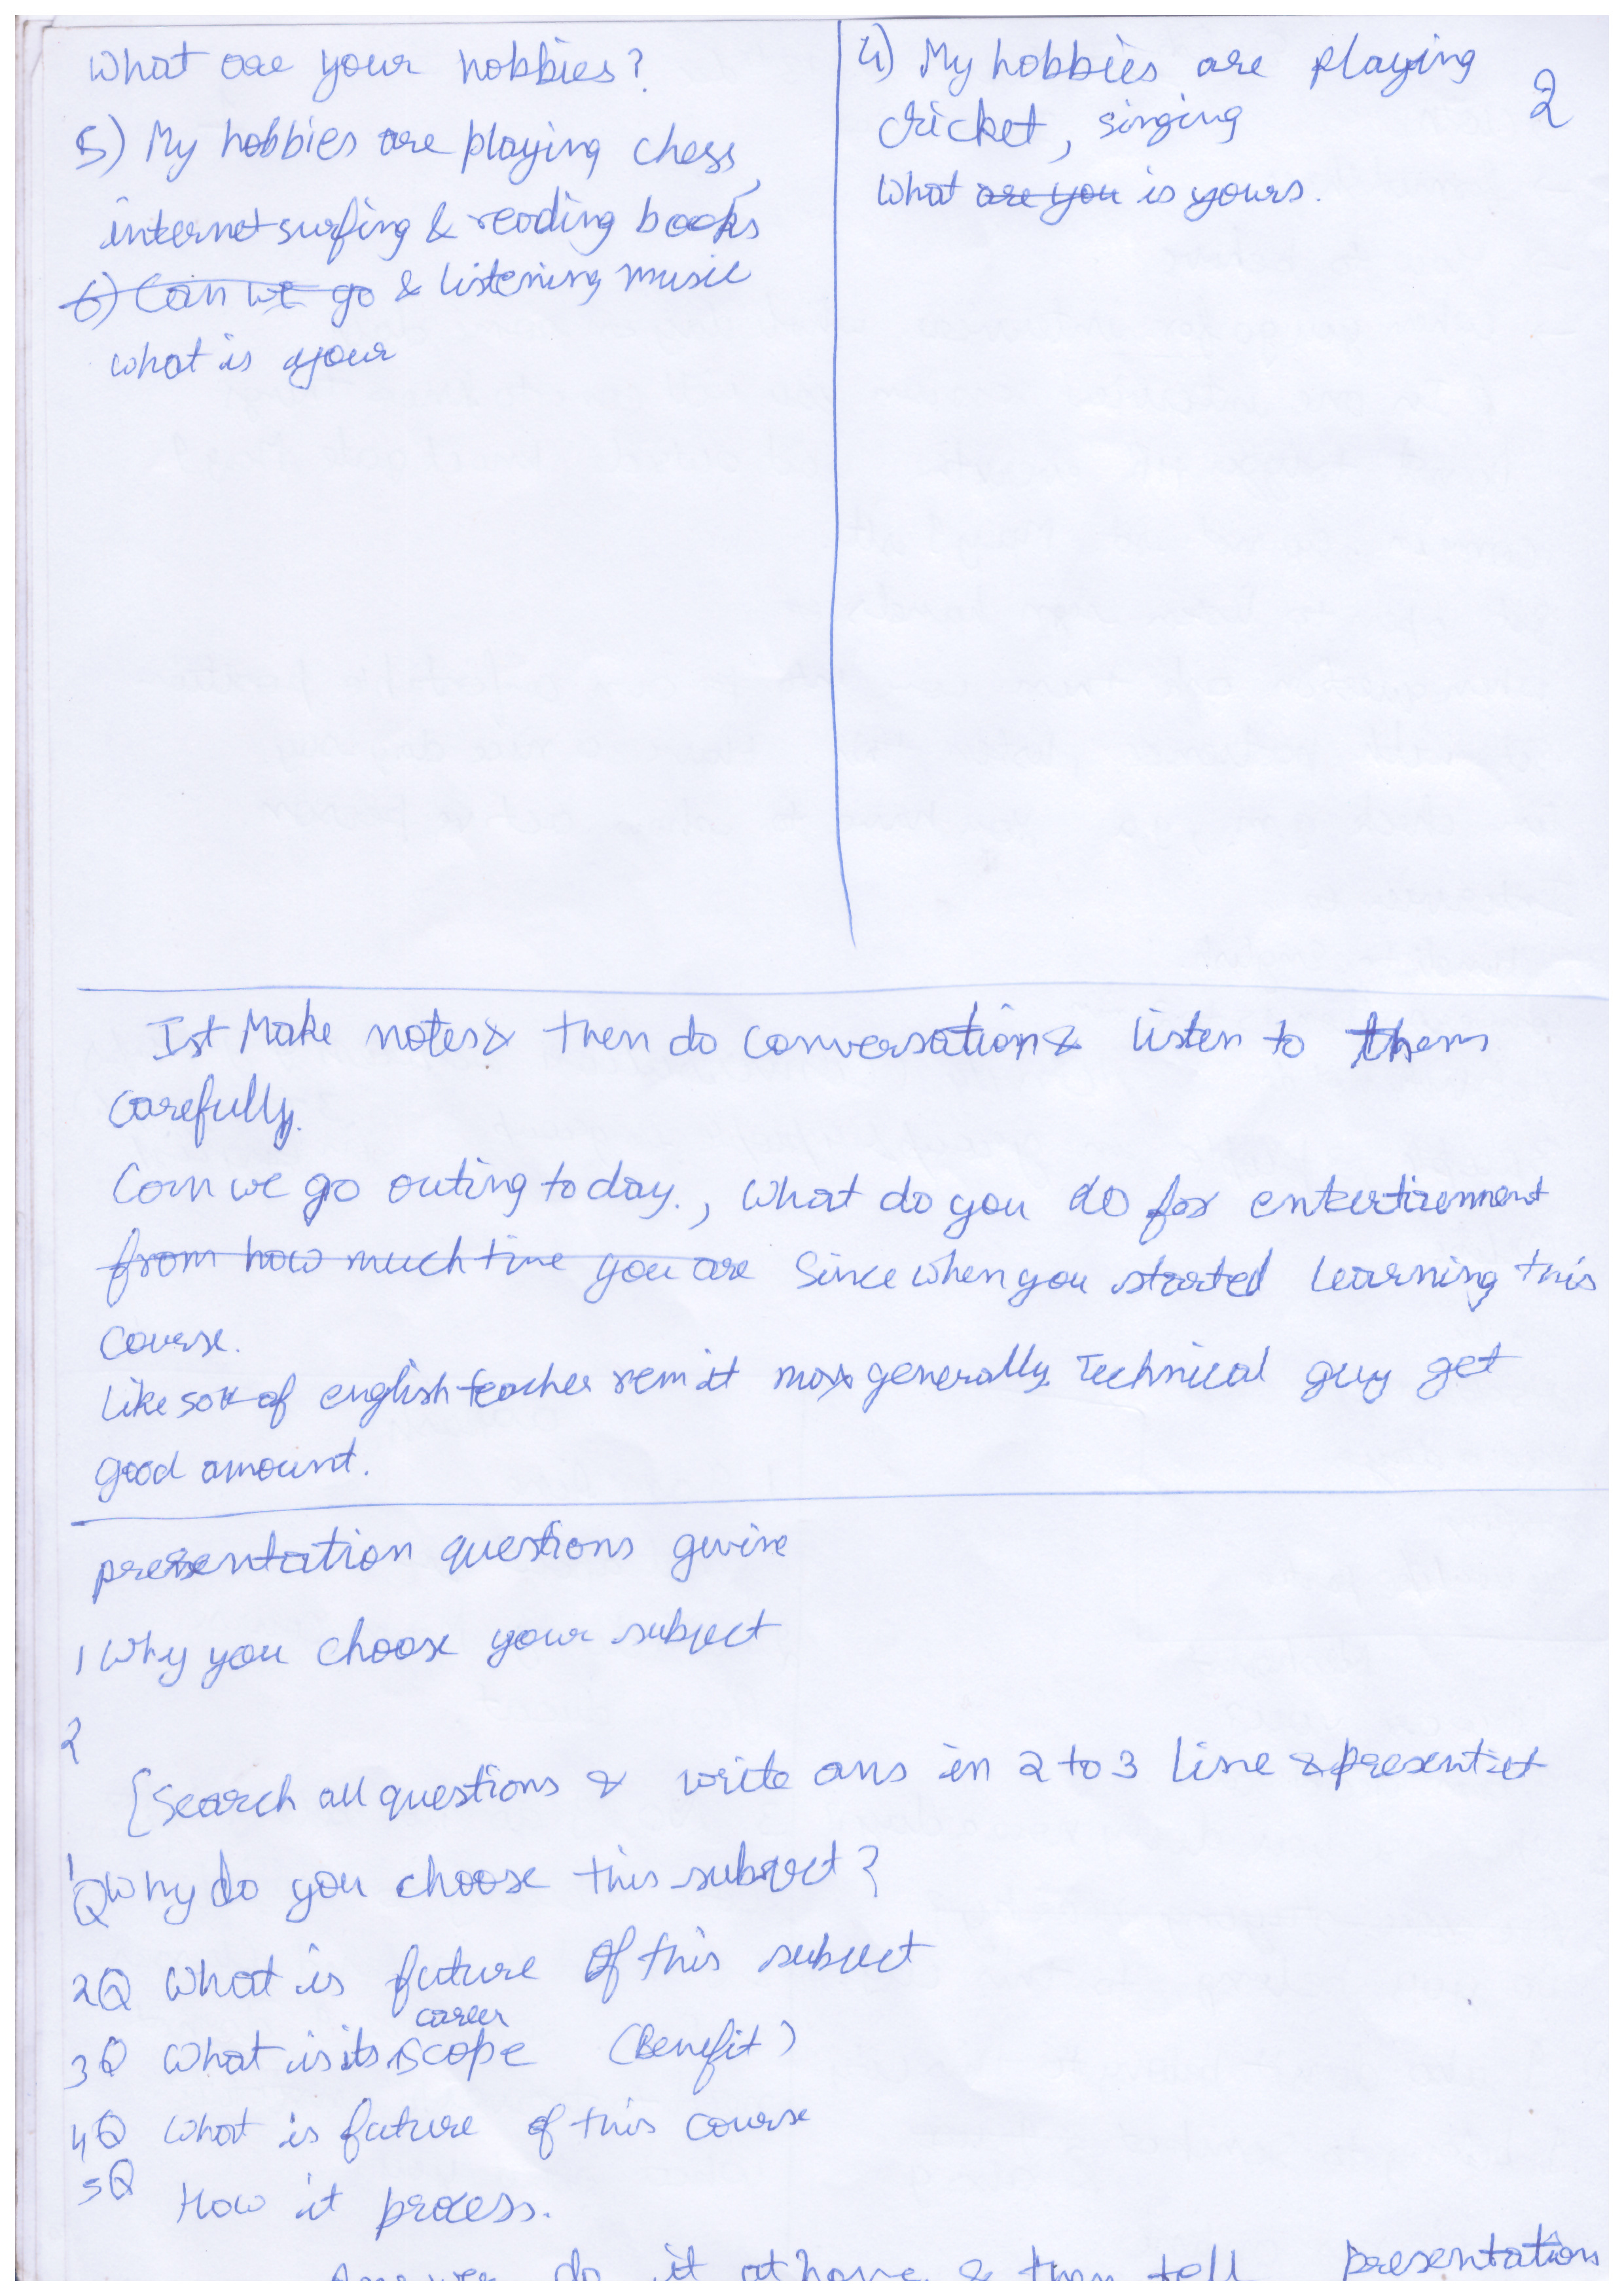 What are your hobbies?
5) My hobbies are playing chess,
internet surfing & reading books
6) Can we go & listening music
What is your
4) My hobbies are playing
cricket, singing
What are you is yours.
2
Ist Make notes & then do conversation & listen to them
carefully.
Can we go outing today., What do you do for entertiemment
from how much time you are Since when you started learning this
course.
Like sort of english teacher remit generally. Technical guy get
good amount.
presentation questions
1 Why you choose your subject
2
[Search all questions & write ans in 2 to 3 line & present it
1Q Why do you choose this subject?
2Q What is future of this subject
career
3Q What is its scope (Benefit)
4Q What is future of this course
5Q How it process.
Answer do it at home & then tell presentation